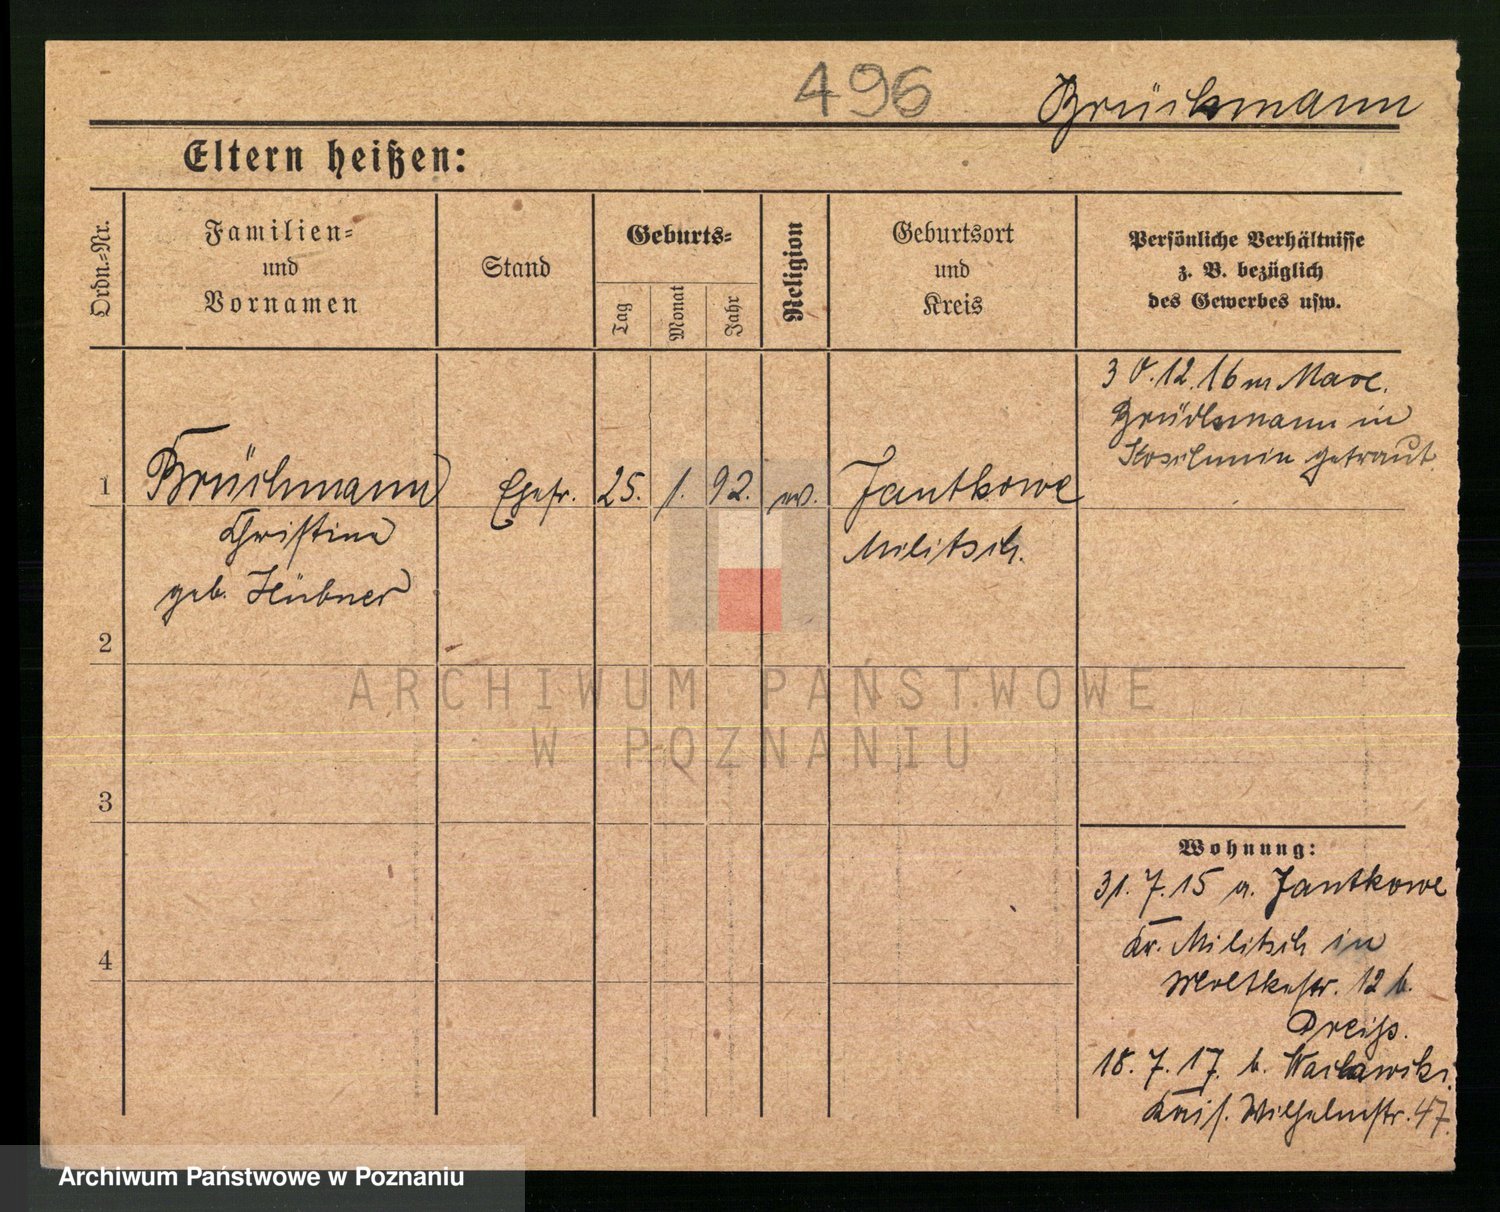 496 Brückmann
Eltern heißen:
Ordn.-Nr.
Familien-
und
Vornamen
Stand
Geburts-
Tag
Monat
Jahr
Religion
Geburtsort
und
Kreis
Persönliche Verhältnisse
z. B. bezüglich
des Gewerbes usw.
30.12.16 m Marc.
Brückmann in
Koschmin getraut.
1 Brüchmann Ehefr. 25. 1. 92. ev. Jantkowe
Christine Militsch.
geb. Hübner
2
3
4
Wohnung:
31.7.15 a. Jantkowe
Kr. Militsch in
Moltkestr. 12 b.
Preiß.
18.7.17. b. Waclawski.
Kais. Wilhelmstr. 47.
ARCHIWUM PAŃSTWOWE
W POZNANIU
Archiwum Państwowe w Poznaniu